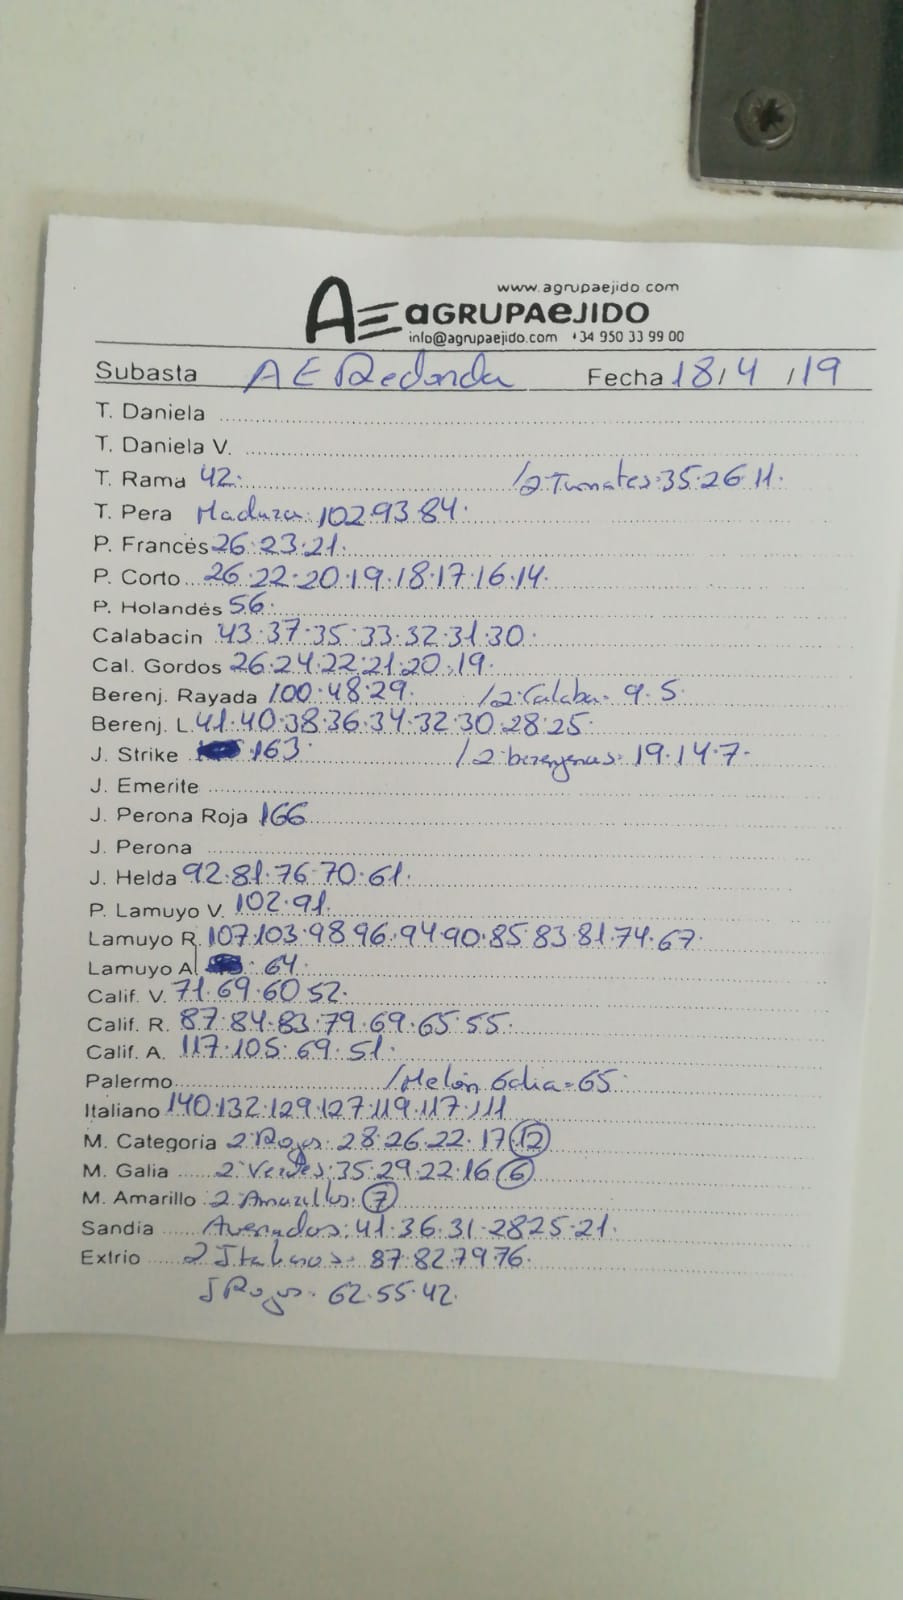 www.agrupaejido.com
AE aGRUPAeJIDO
info@agrupaejido.com +34 950 33 99 00
Subasta AE Redonda Fecha 18/4/19
T. Daniela
T. Daniela V.
T. Rama 42. /2: Tomates: 35.26.11.
T. Pera Madura: 102.93.84.
P. Francés 26.23.21.
P. Corto 26.22.20.19.18.17.16.14.
P. Holandés 56.
Calabacin 43.37.35.33.32.31.30.
Cal. Gordos 26.24.22.21.20.19.
Berenj. Rayada 100.48.29. /2: Calaba. 9.5.
Berenj. L. 41.40.38.36.34.32.30.28.25.
J. Strike 163. /2: berenjenas: 19.14.7.
J. Emerite
J. Perona Roja 166
J. Perona
J. Helda 92.81.76.70.61.
P. Lamuyo V. 102.91.
Lamuyo R. 107.103.98.96.94.90.85.83.81.74.67.
Lamuyo A. 64.
Calif. V. 71.69.60.52.
Calif. R. 87.84.83.79.69.65.55.
Calif. A. 117.105.69.51.
Palermo /Melón Gdia=65.
Italiano 140.132.129.127.119.117.111
M. Categoria 2: Rojos: 28.26.22.17.12
M. Galia 2: Verdes: 35.29.22.16.6
M. Amarillo 2: Amarillos: 7
Sandia Asurados: 41.36.31.28.25.21.
Extrio 2 Italianos: 87.82.79.76.
J Rojos. 62.55.42.